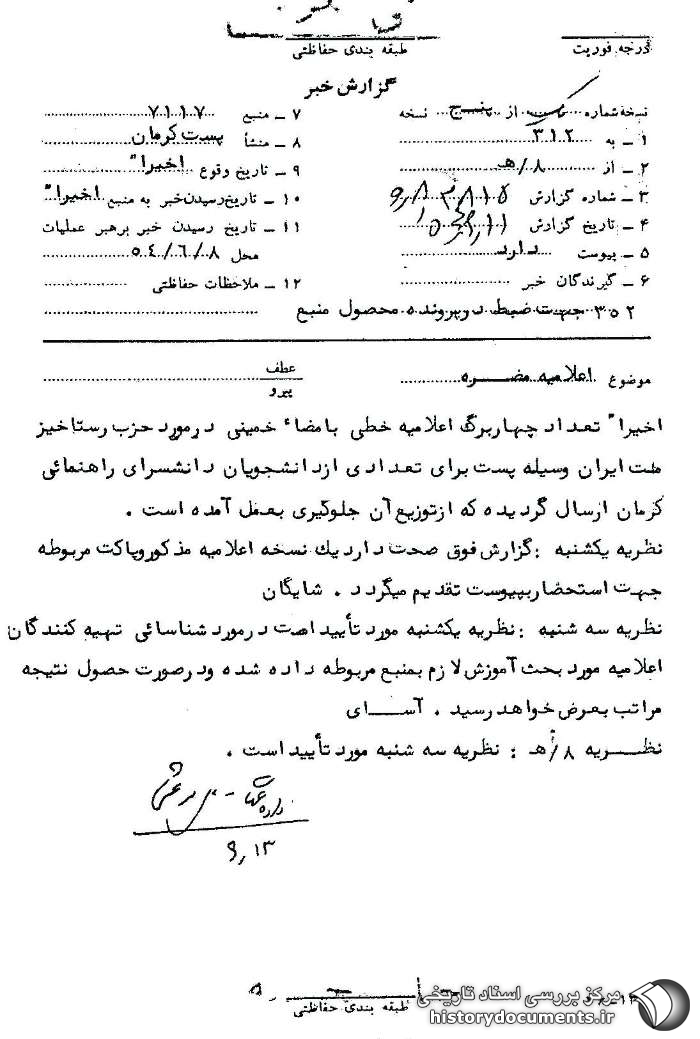 درجه فوریت
طبقه بندی حفاظتی
گزارش خبر
نسخه شماره یک از پنج نسخه
۱ ـ به ۳۱۲
۲ ـ از ۸/هـ
۳ ـ شماره گزارش
۴ ـ تاریخ گزارش
۵ ـ پیوست دارد
۶ ـ گیرندگان خبر
۷ ـ منبع ۷۱۱۷
۸ ـ منشأ پست کرمان
۹ ـ تاریخ وقوع اخیرا"
۱۰ ـ تاریخ رسیدن خبر به منبع اخیرا"
۱۱ ـ تاریخ رسیدن خبر برهبر عملیات
محل ۵۴/۶/۸
۱۲ ـ ملاحظات حفاظتی
۳۵۲ جهت ضبط در پرونده محصول منبع
موضوع اعلامیه مضره
عطف
پیرو
اخیرا" تعداد چهاربرگ اعلامیه خطی بامضاء خمینی درمورد حزب رستاخیز
ملت ایران وسیله پست برای تعدادی ازدانشجویان دانشسرای راهنمائی
کرمان ارسال گردیده که ازتوزیع آن جلوگیری بعمل آمده است .
نظریه یکشنبه : گزارش فوق صحت دارد یك نسخه اعلامیه مذکور و پاکت مربوطه
جهت استحضار بپیوست تقدیم میگردد . شایگان
نظریه سه شنبه : نظریه یکشنبه مورد تأیید است درمورد شناسائی تهیه کنندگان
اعلامیه مورد بحث آموزش لازم بمنبع مربوطه داده شده ودرصورت حصول نتیجه
مراتب بعرض خواهد رسید . آسـای
نظـریه ۸/هـ : نظریه سه شنبه مورد تأیید است .
۹/۱۳
طبقه بندی حفاظتی
مرکز بررسی اسناد تاریخی
historydocuments.ir